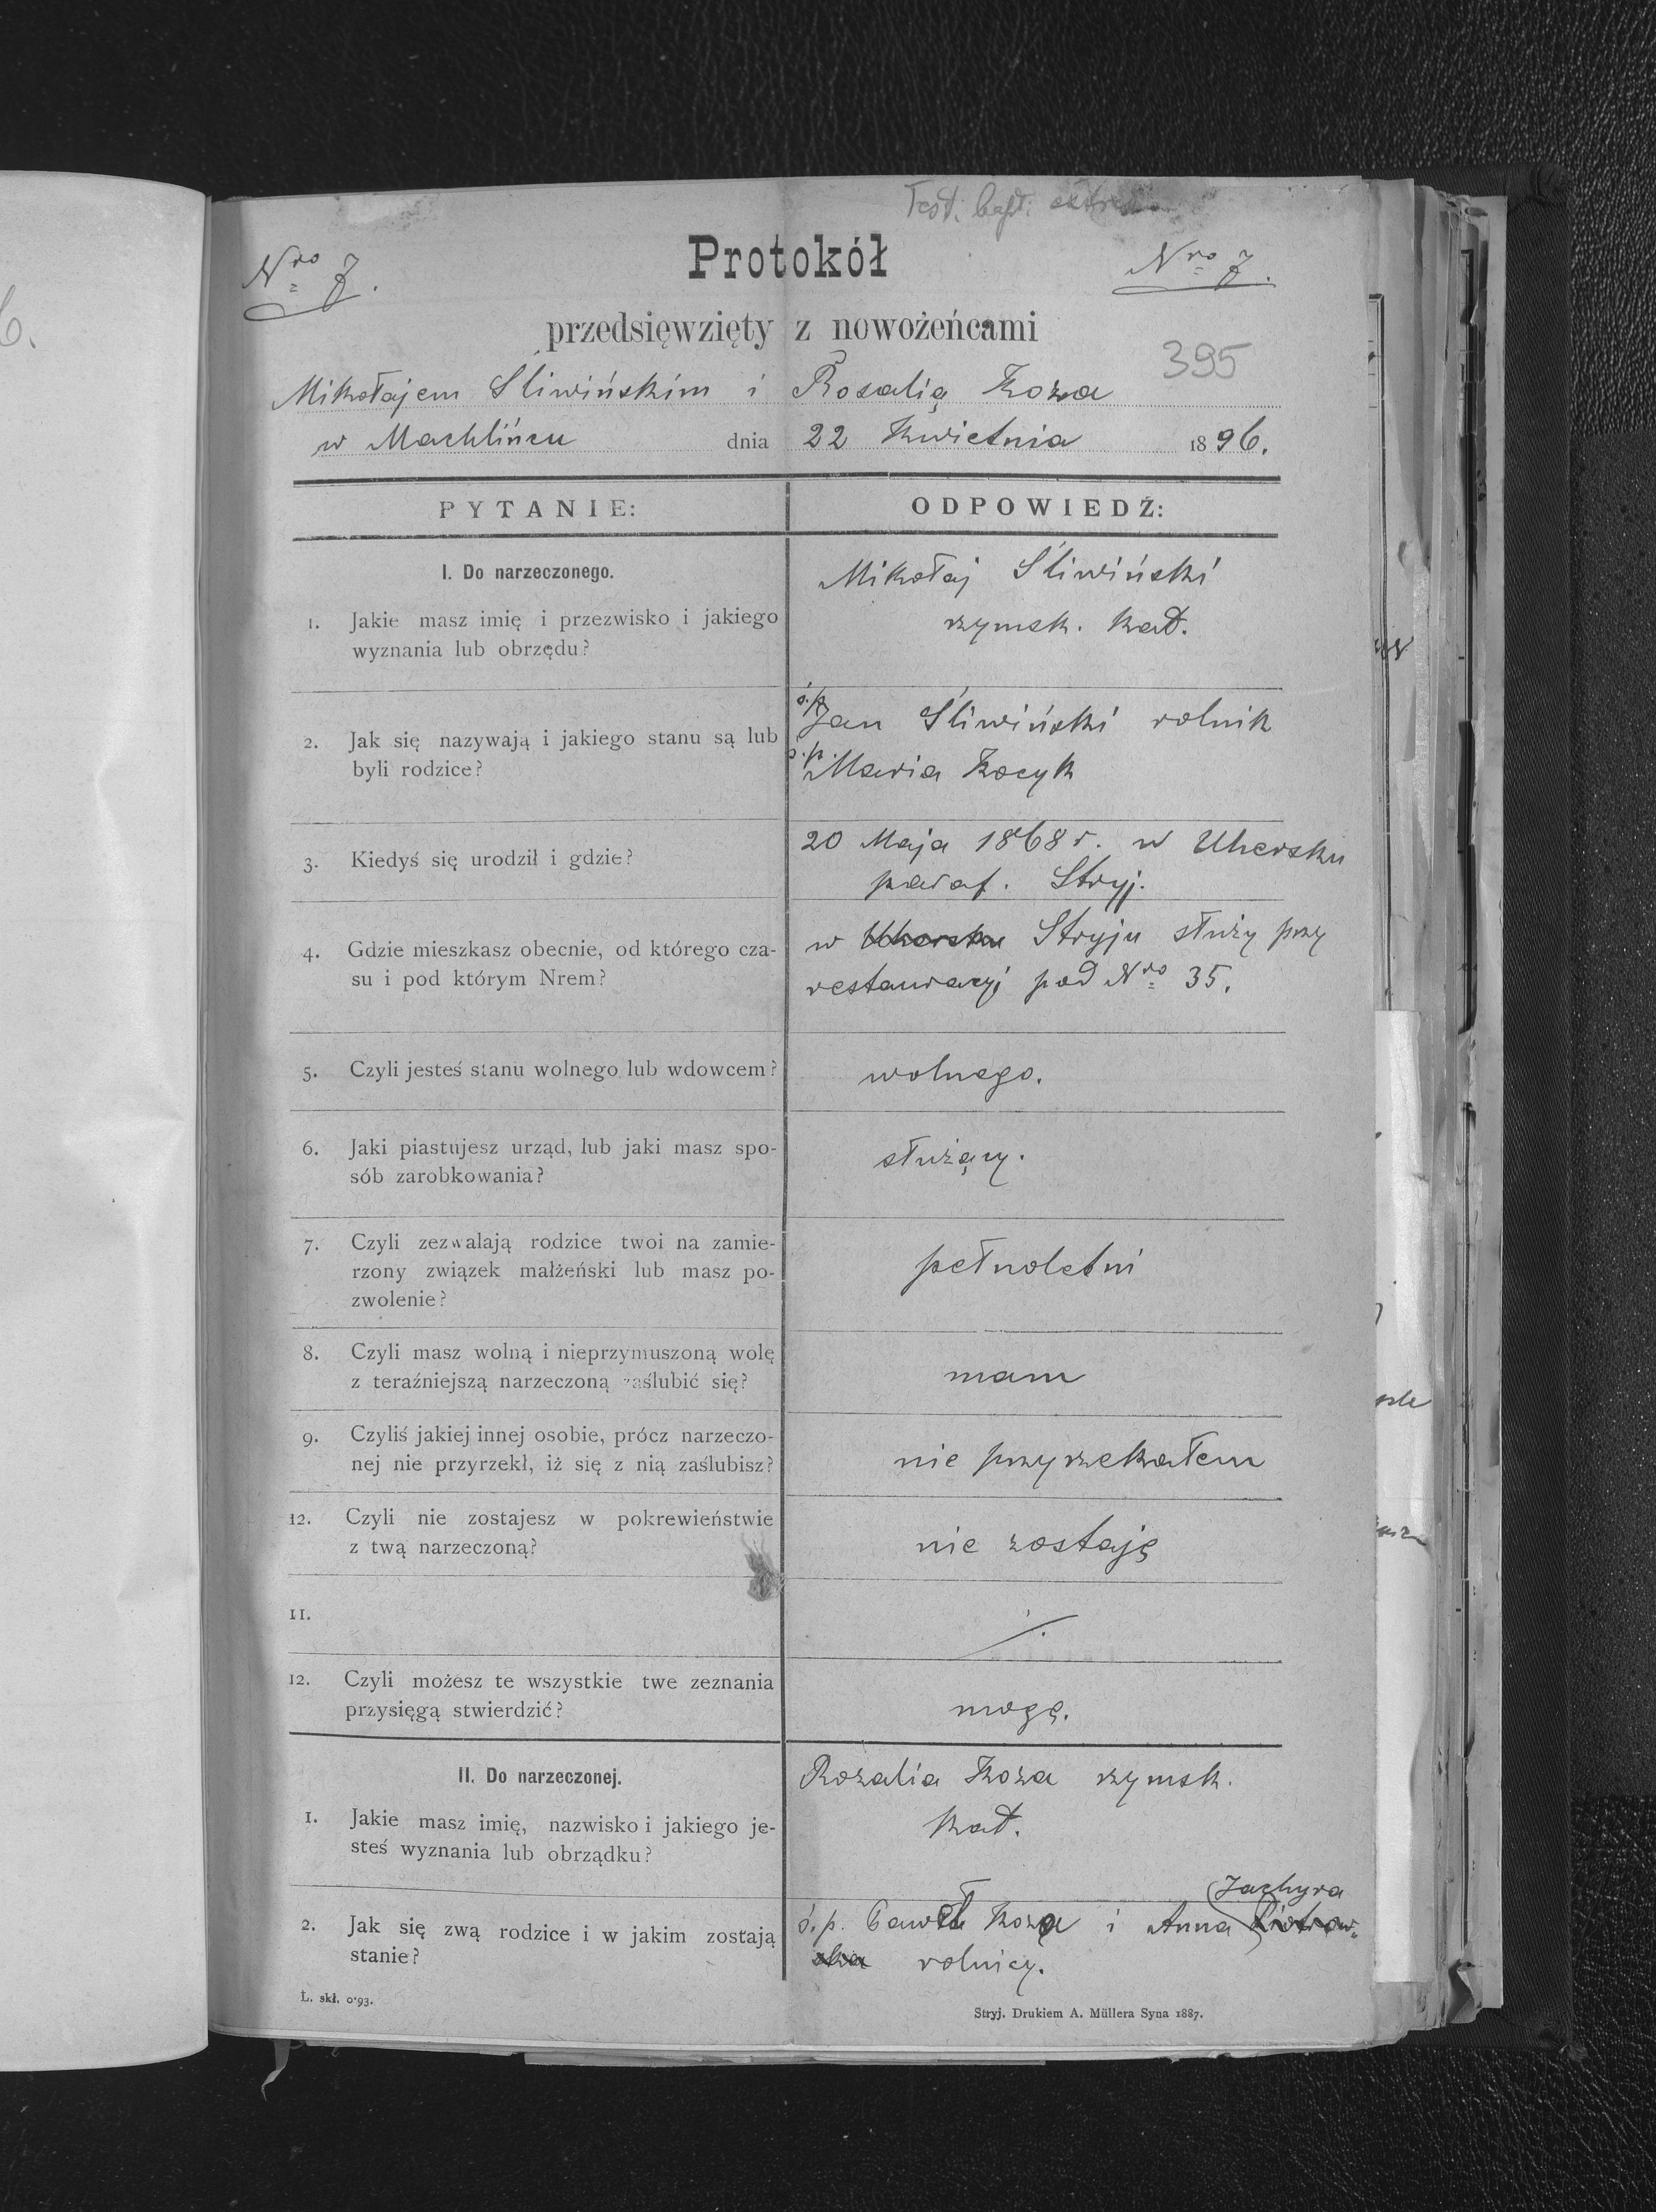 Test. bapt.
Nro 7.
Protokół
Nro 7.
przedsięwzięty z nowożeńcami
395
Mikołajem Śliwińskim i Rosalią Koza
w Machlińcu dnia 22 Kwietnia 1896.
PYTANIE:
ODPOWIEDŹ:
I. Do narzeczonego.
1. Jakie masz imię i przezwisko i jakiego
wyznania lub obrzędu?
Mikołaj Śliwiński
rzymsk. kat.
2. Jak się nazywają i jakiego stanu są lub
byli rodzice?
ś.p. Jan Śliwiński rolnik
ś.p. Maria Kocyk
3. Kiedyś się urodził i gdzie?
20 Maja 1868 r. w Uhersku
paraf. Stryj.
4. Gdzie mieszkasz obecnie, od którego cza-
su i pod którym Nrem?
w Uhersku Stryju służy przy
restauracyi pod Nro 35.
5. Czyli jesteś stanu wolnego lub wdowcem?
wolnego.
6. Jaki piastujesz urząd, lub jaki masz spo-
sób zarobkowania?
służący.
7. Czyli zezwalają rodzice twoi na zamie-
rzony związek małżeński lub masz po-
zwolenie?
pełnoletni
8. Czyli masz wolną i nieprzymuszoną wolę
z teraźniejszą narzeczoną zaślubić się?
mam
9. Czyliś jakiej innej osobie, prócz narzeczo-
nej nie przyrzekł, iż się z nią zaślubisz?
nie przyrzekałem
12. Czyli nie zostajesz w pokrewieństwie
z twą narzeczoną?
nie zostaję
11.
12. Czyli możesz te wszystkie twe zeznania
przysięgą stwierdzić?
mogę.
II. Do narzeczonej.
1. Jakie masz imię, nazwisko i jakiego je-
steś wyznania lub obrządku?
Rozalia Koza rzymsk.
kat.
2. Jak się zwą rodzice i w jakim zostają
stanie?
Zachyra
ś.p. Paweł Koza i Anna Piotrow-
ska rolnicy.
L. skł. 0·93.
Stryj. Drukiem A. Müllera Syna 1887.